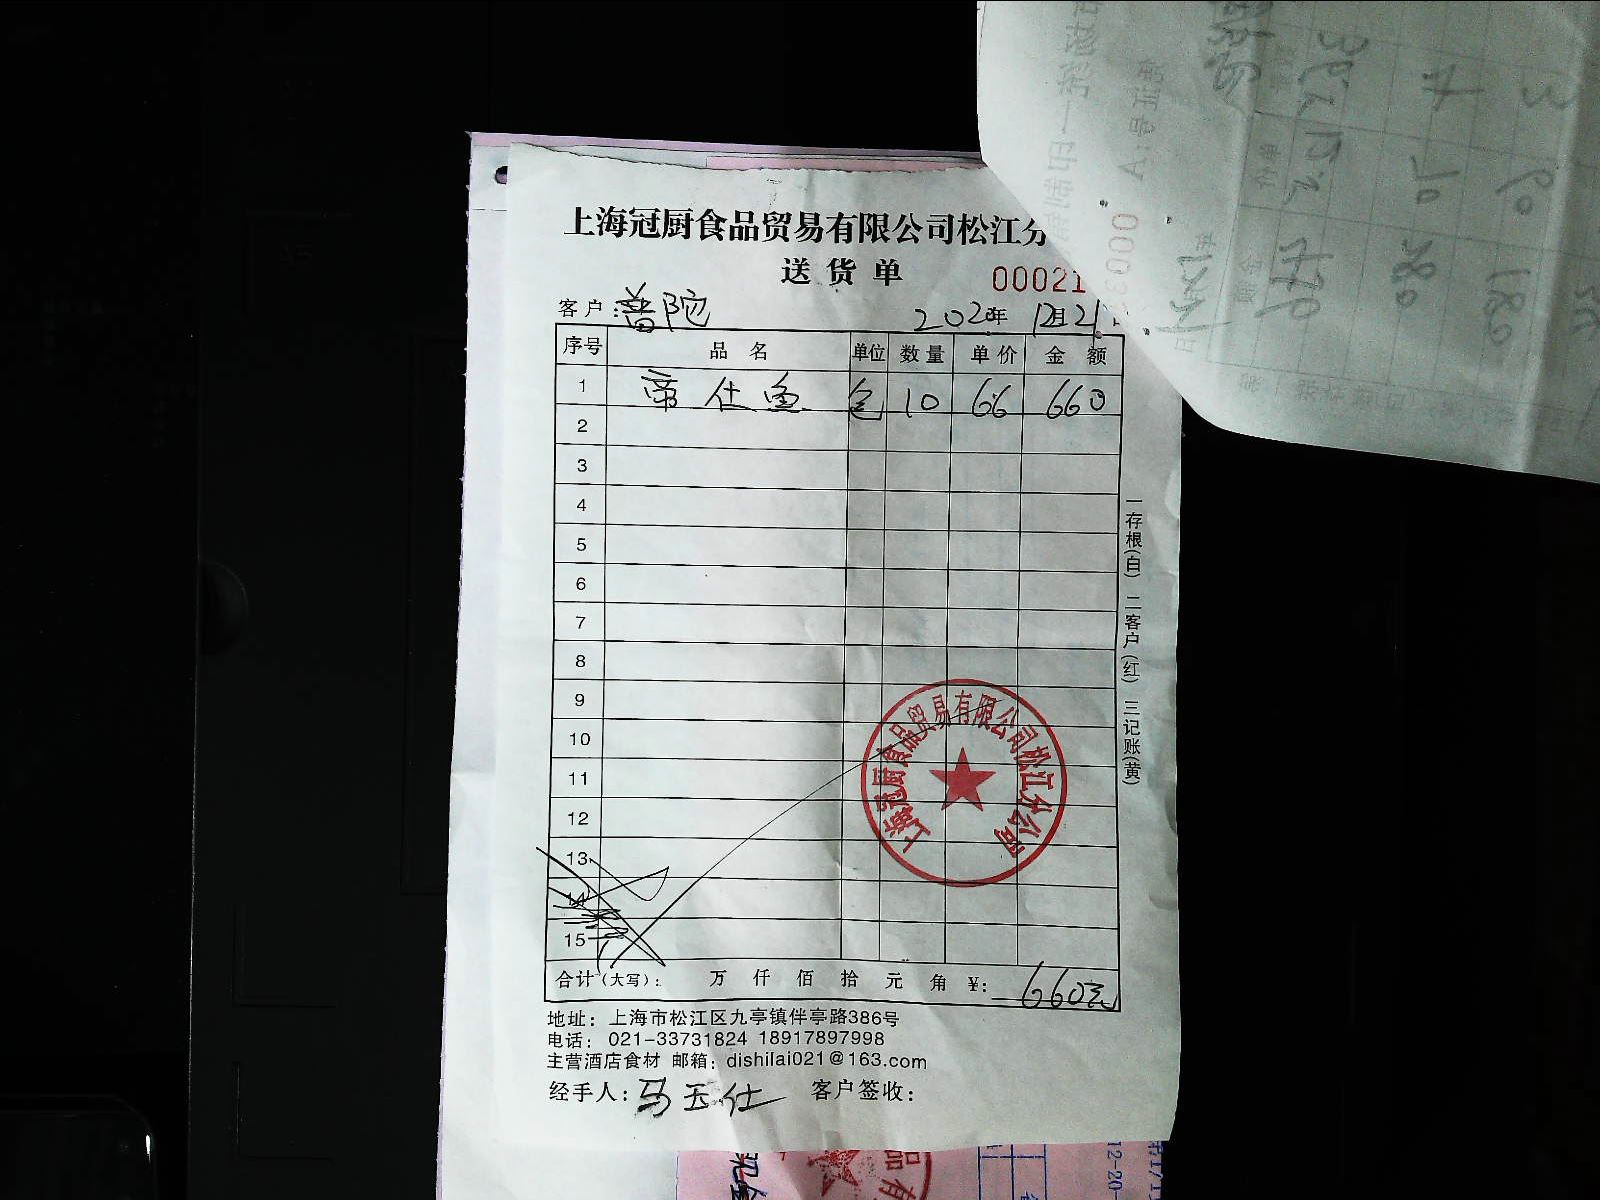 上海冠厨食品贸易有限公司松江分
送货单
00021
客户:普陀 2020年 12月21
序号 品名 单位 数量 单价 金额
1 帝仕鱼 包 10 66 660
2
3
4
5
6
7
8
9
10
11
12
13
14
15
合计(大写): 万 仟 佰 拾 元 角 ¥: 660元
地址: 上海市松江区九亭镇伴亭路386号
电话: 021-33731824 18917897998
主营酒店食材 邮箱: dishilai021@163.com
经手人: 马玉仕 客户签收:
一存根(白) 二客户(红) 三记账(黄)
上海冠厨食品贸易有限公司松江分公司
品有
12-20-